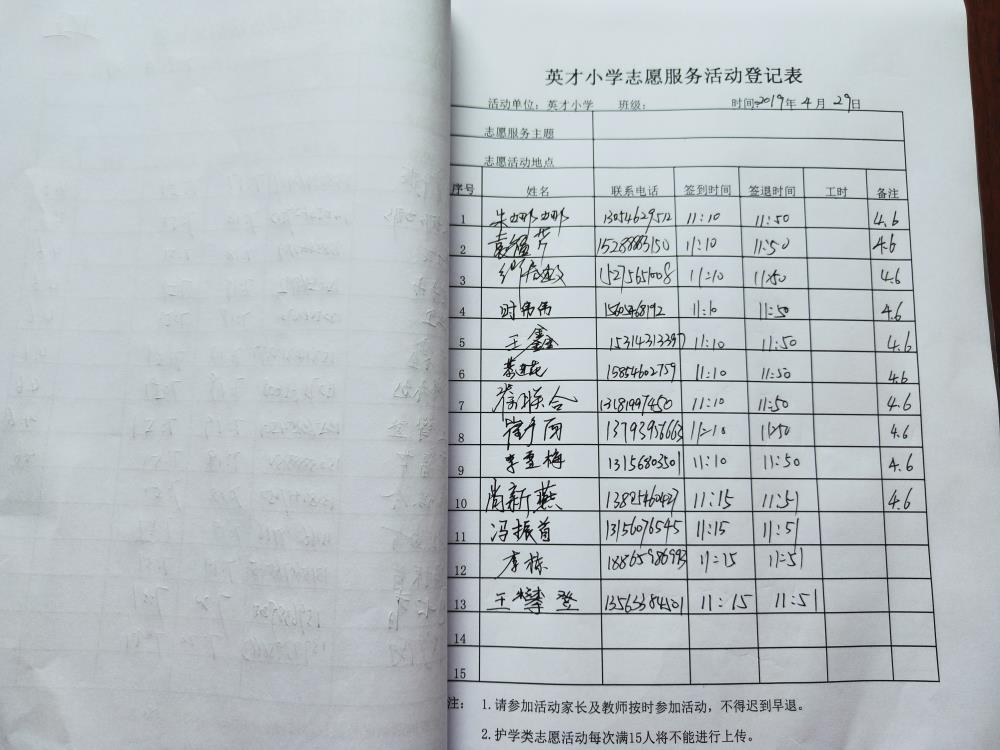 英才小学志愿服务活动登记表
活动单位：英才小学 班级： 时间：2019年4月29日
志愿服务主题
志愿活动地点
序号 姓名 联系电话 签到时间 签退时间 工时 备注
1 朱娜娜 13054629512 11:10 11:50 4.6
2 15288883150 11:10 11:50 4.6
3 15275651008 11:10 11:50 4.6
4 时伟伟 15605468192 11:10 11:50 4.6
5 王鑫 15314313397 11:10 11:50 4.6
6 15854602759 11:10 11:50 4.6
7 联合 13181997450 11:10 11:50 4.6
8 13793956663 11:10 11:50 4.6
9 李雪梅 13156803501 11:10 11:50 4.6
10 尚新燕 11:15 11:51 4.6
11 冯振首 13156076545 11:15 11:51
12 李栋 18865986993 11:15 11:51
13 王攀登 13563384501 11:15 11:51
14
15
注： 1.请参加活动家长及教师按时参加活动，不得迟到早退。
2.护学类志愿活动每次满15人将不能进行上传。